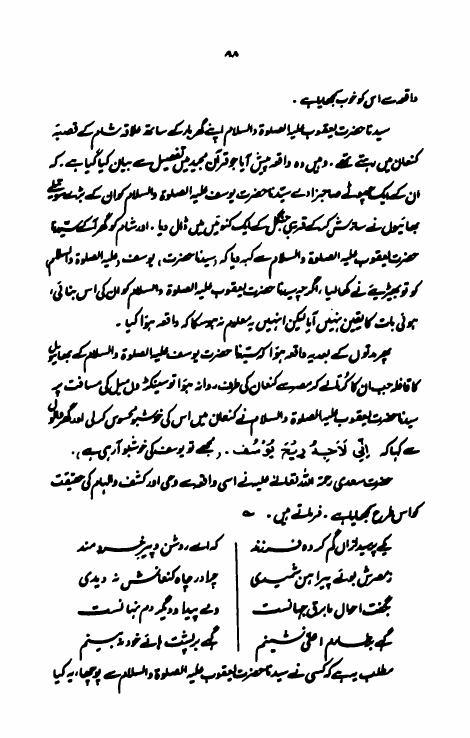 ۹۸
واقعہ سے اس کو خوب سمجھایا ہے ۔
سیدنا حضرت یعقوب علیہ الصلوٰۃ والسلام اپنے گھربار کے ساتھ علاقہ شام کے قصبہ
کنعان میں بستے تھے ۔ وہیں وہ واقعہ پیش آیا جو قرآن مجید میں تفصیل سے بیان کیا گیا ہے ۔ کہ
ان کے ایک چھوٹے صاحبزادے سیدنا حضرت یوسف علیہ الصلوٰۃ والسلام کو ان کے بڑے سوتیلے
بھائیوں نے سازش کر کے قریبی جنگل کے ایک کنوئیں میں ڈال دیا ۔ اور شام کو گھر آکے سیدنا
حضرت یعقوب علیہ الصلوٰۃ والسلام سے کہہ دیا کہ (سیدنا حضرت) یوسف (علیہ الصلوٰۃ والسلام)
کو تو بھیڑیے نے کھا لیا ، اگرچہ سیدنا حضرت یعقوب علیہ الصلوٰۃ والسلام کو ان کی اس بنائی ،
ہوئی بات کا یقین نہیں آیا لیکن انہیں یہ معلوم نہ ہو سکا کہ واقعہ ہوا کیا ۔
پھر مدتوں کے بعد یہ واقعہ ہوا کہ سیدنا حضرت یوسف علیہ الصلوٰۃ والسلام کے بھائیوں
کا قافلہ جب ان کا کُرتا لے کر مصر سے کنعان کی طرف روانہ ہوا تو سینکڑوں میل کی مسافت پر
سیدنا حضرت یعقوب علیہ الصلوٰۃ والسلام نے کنعان میں اس کی خوشبو محسوس کر لی اور گھر والوں
سے کہا کہ اِنِّی لَاَجِدُ رِیْحَ یُوْسُفَ ۔ (مجھے تو یوسف کی خوشبو آ رہی ہے) ۔
حضرت سعدی رحمۃ اللہ تعالٰے علیہ نے اسی واقعہ سے وحی اور کشف و الہام کی حقیقت
کو اس طرح سمجھایا ہے ۔ فرماتے ہیں ۔ ؎
یکے پرسید ازاں گم کردہ فرزند کہ اے روشن و پیر خرد مند
زمصرش بوئے پیراہن شمیدی چرا در چاہ کنعانش نہ دیدی
بگفت احوال ما برق جہانست دمے پیدا و دیگر دم نہانست
گہے بر طارم اعلیٰ نشینم گہے بر پشت پائے خود نہ بینم
مطلب یہ ہے کہ کسی نے سیدنا حضرت یعقوب علیہ الصلوٰۃ والسلام سے پوچھا ، یہ کیا